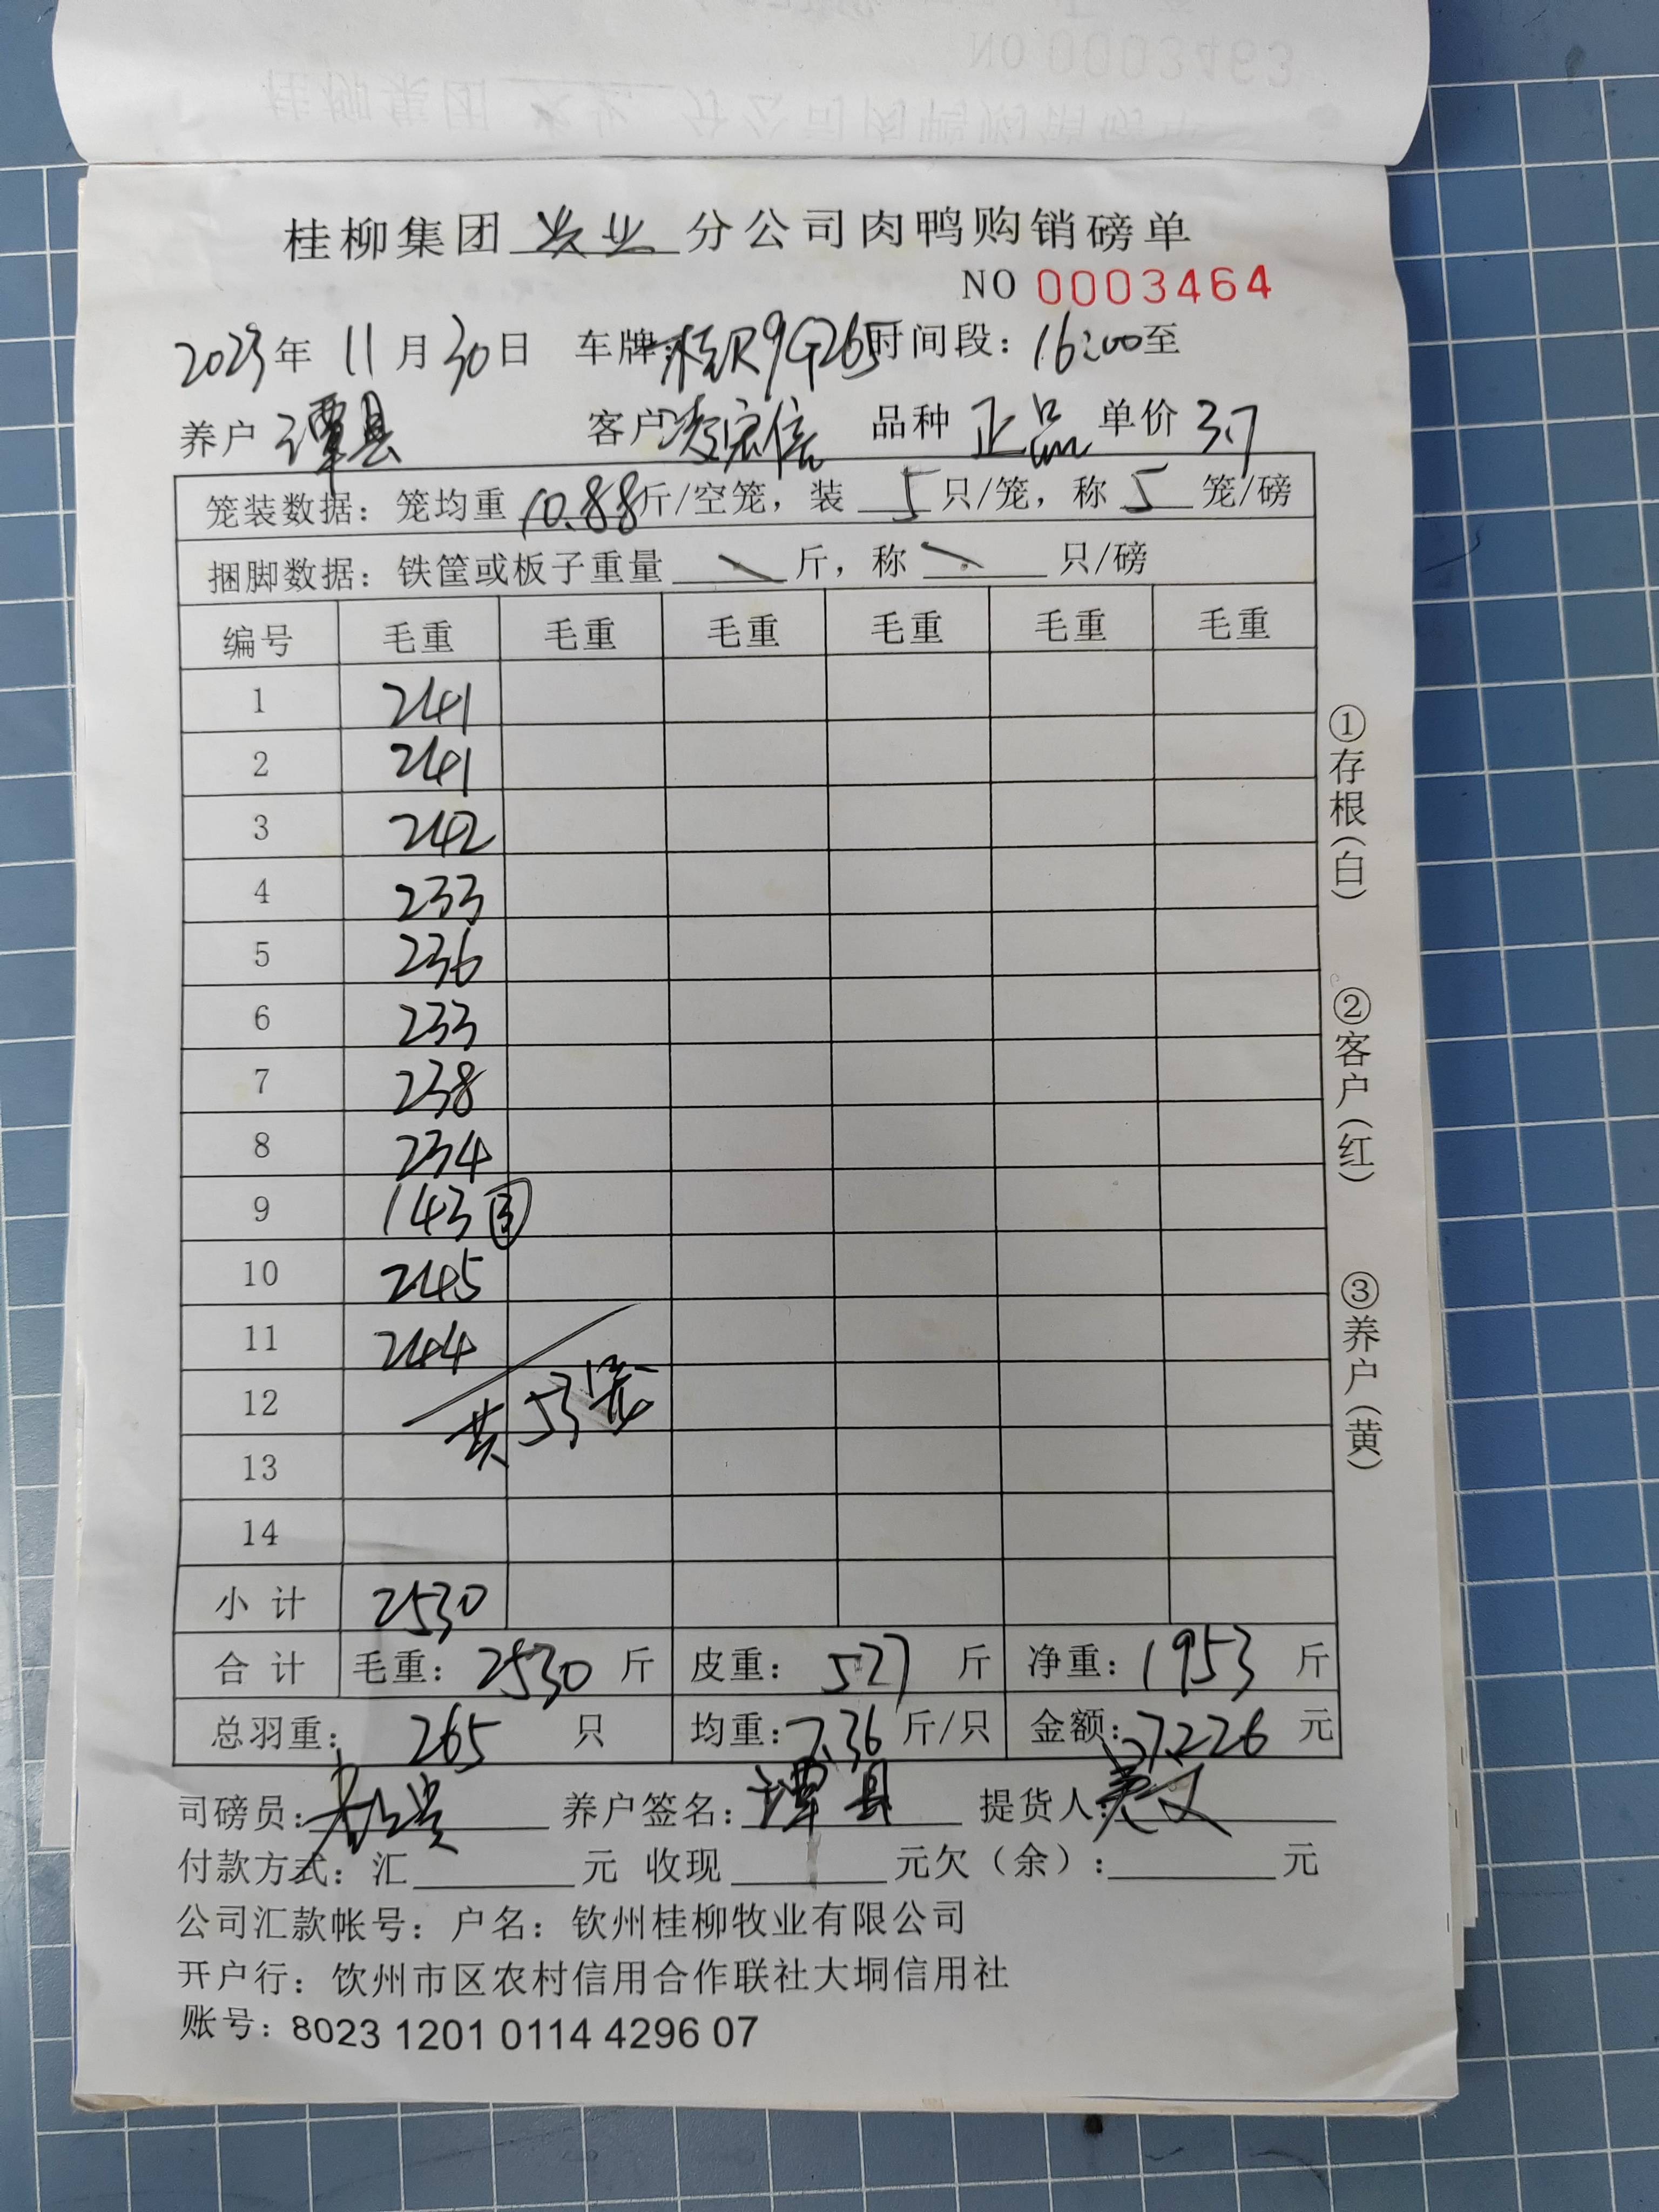 桂柳集团 兴业 分公司肉鸭购销磅单
NO 0003464
2023年 11月30日 车牌:桂R9G265时间段:16:00至
养户 谭县 客户 凌宏信 品种 正品 单价 3.7
笼装数据:笼均重 10.88斤/空笼,装 5 只/笼,称 5 笼/磅
捆脚数据:铁筐或板子重量 \ 斤,称 \ 只/磅
编号 毛重 毛重 毛重 毛重 毛重 毛重
1 241
2 241
3 242
4 233
5 236
6 233
7 238
8 234
9 143 ③
10 245
11 244
12 共53笼
13
14
小计 2530
合计 毛重:2530 斤 皮重:527 斤 净重:1953 斤
总羽重:265 只 均重:7.36 斤/只 金额:7226 元
司磅员: 养户签名:谭县 提货人:
付款方式:汇 元 收现 元欠(余): 元
公司汇款帐号:户名:钦州桂柳牧业有限公司
开户行:饮州市区农村信用合作联社大垌信用社
账号:8023 1201 0114 4296 07
①存根(白)
②客户(红)
③养户(黄)
NO 0003463
桂柳集团 兴业 分公司肉鸭购销磅单